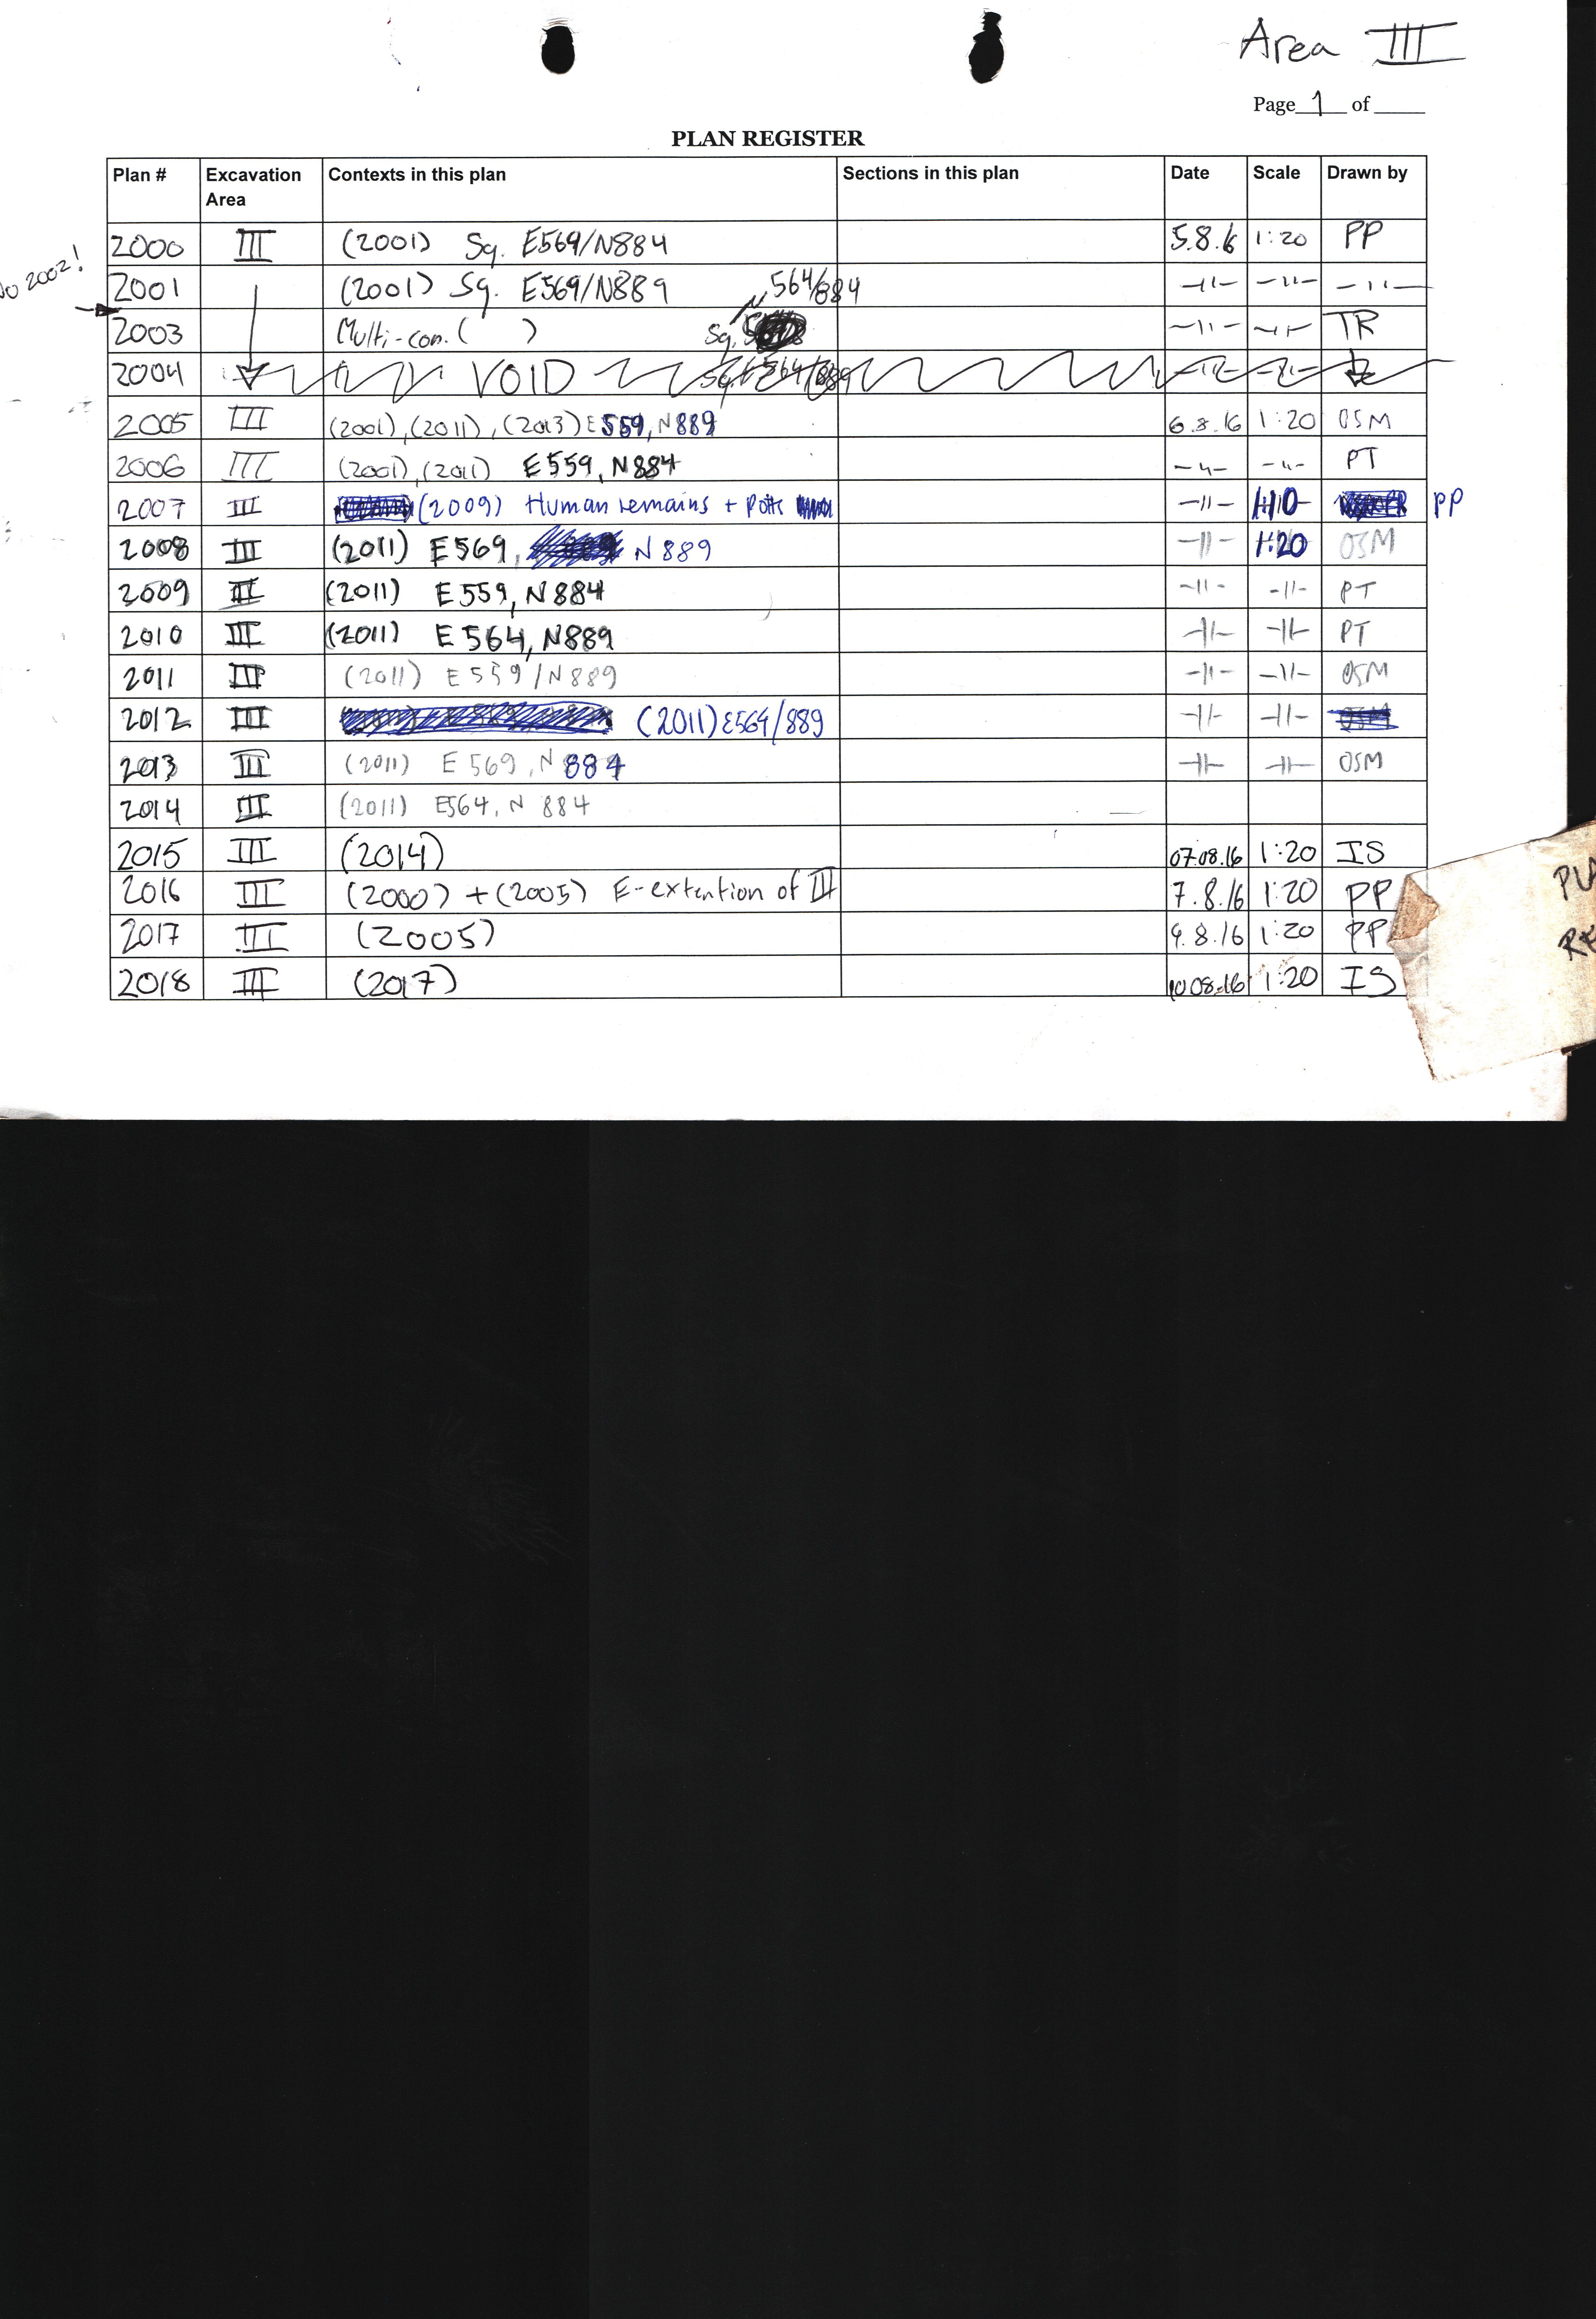 Area III
Page 1 of
PLAN REGISTER
Plan # Excavation Area Contexts in this plan Sections in this plan Date Scale Drawn by
2000 III (2001) Sq. E569/N884 5.8.16 1:20 PP
No 2002!
2001 (2001) Sq. E569/N889 -11- -11- -11-
564/884
2003 Multi-con. ( ) Sq. -11- -11- TR
2004 VOID Sq. E564/889 -11- -11-
2005 III (2001), (2011), (2013) E559, N889 6.8.16 1:20 OSM
2006 III (2001), (2011) E559, N884 -11- -11- PT
2007 III (2009) Human remains + Potts -11- 1:10 PP
2008 III (2011) E569, N889 -11- 1:20 OSM
2009 III (2011) E559, N884 -11- -11- PT
2010 III (2011) E564, N889 -11- -11- PT
2011 III (2011) E559/N889 -11- -11- OSM
2012 III (2011) E564/889 -11- -11-
2013 III (2011) E569, N884 -11- -11- OSM
2014 III (2011) E564, N884
2015 III (2014) 07.08.16 1:20 IS
2016 III (2000) + (2005) E-extention of III 7.8.16 1:20 PP
2017 III (2005) 9.8.16 1:20 PP
2018 III (2017) 10.08.16 1:20 IS